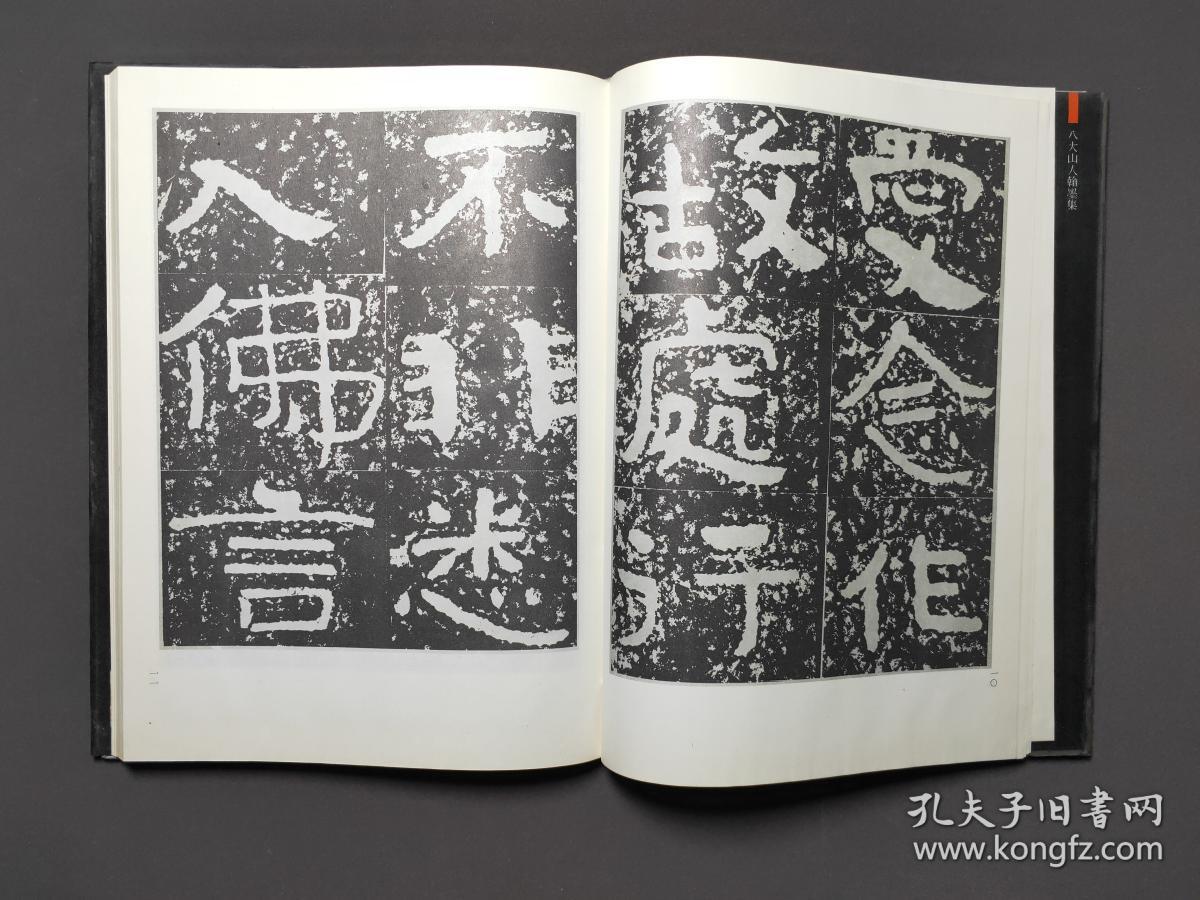 八大山人翰墨集
受念作
故處行
一〇
不非悉
人佛言
一一
孔夫子旧書网
www.kongfz.com